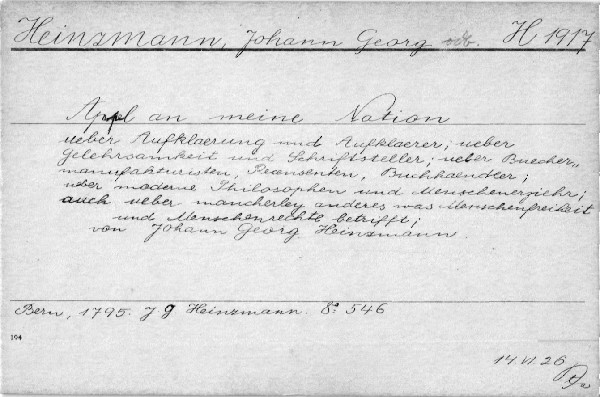 Heinzmann, Johann Georg H 1917
Appl an meine Nation
ueber Aufklaerung und Aufklaerer; ueber
Gelehrsamkeit und Schriftsteller; ueber Buecher,,
manufakturisten, Rezensenten, Buchhaendler;
ueber moderne Philosophen und Menschenerziehr;
auch ueber mancherley anderes was Menschenfreiheit
und Menschenrechte betrifft;
von Johann Georg Heinzmann
Bern, 1795. J. G Heinzmann. 8º 546
194
14.VI.26